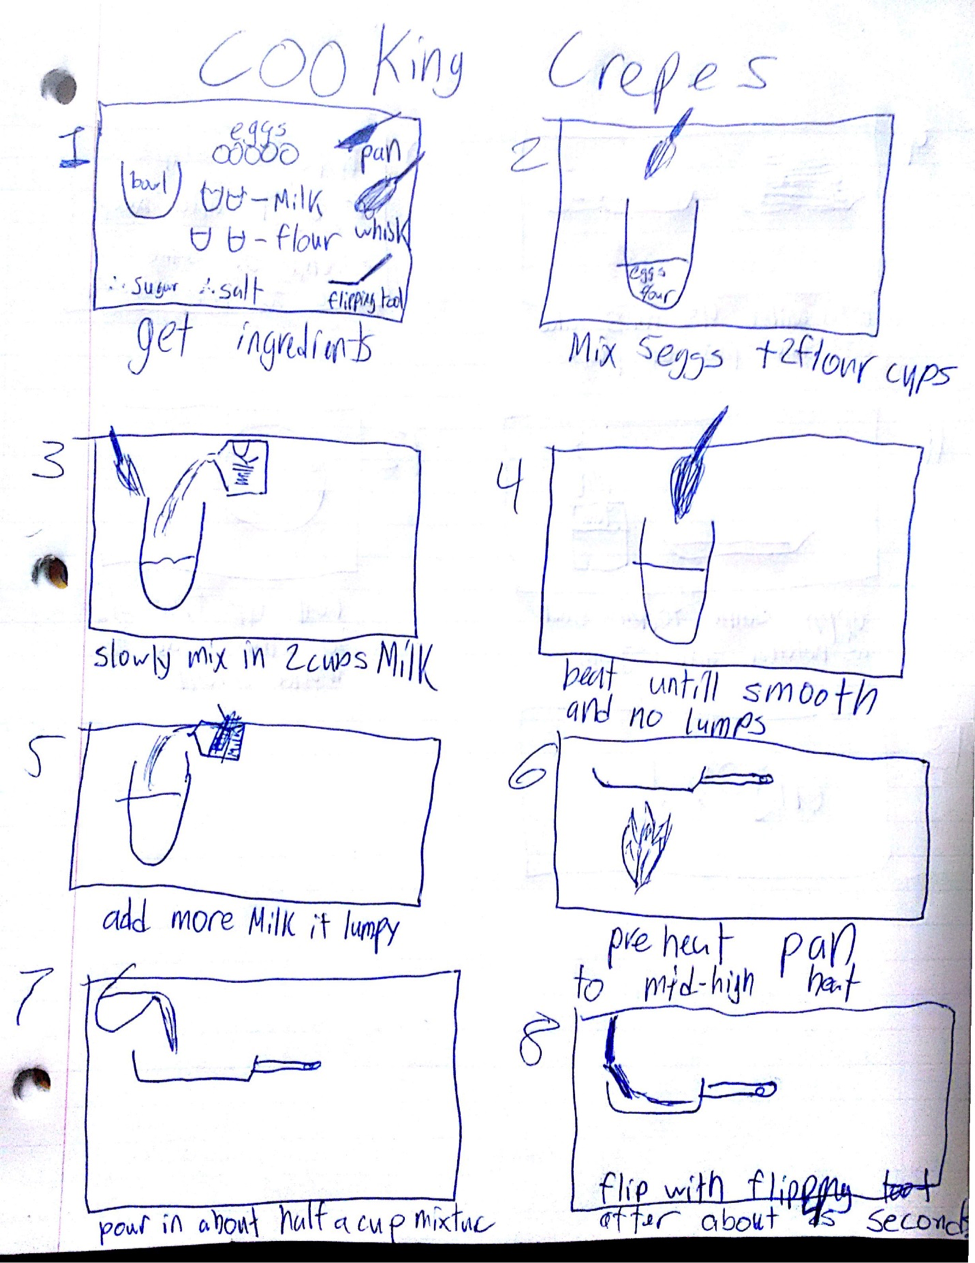 Cooking Crepes
1
eggs
pan
bowl
- Milk
- flour
whisk
sugar
salt
flipping tool
get ingredients
2
eggs
flour
Mix 5eggs +2flour cups
3
slowly mix in 2cups Milk
4
beat untill smooth
and no lumps
5
add more Milk if lumpy
6
pre heat pan
to mid-high heat
7
pour in about half a cup
8
flip with flipping
after about seconds